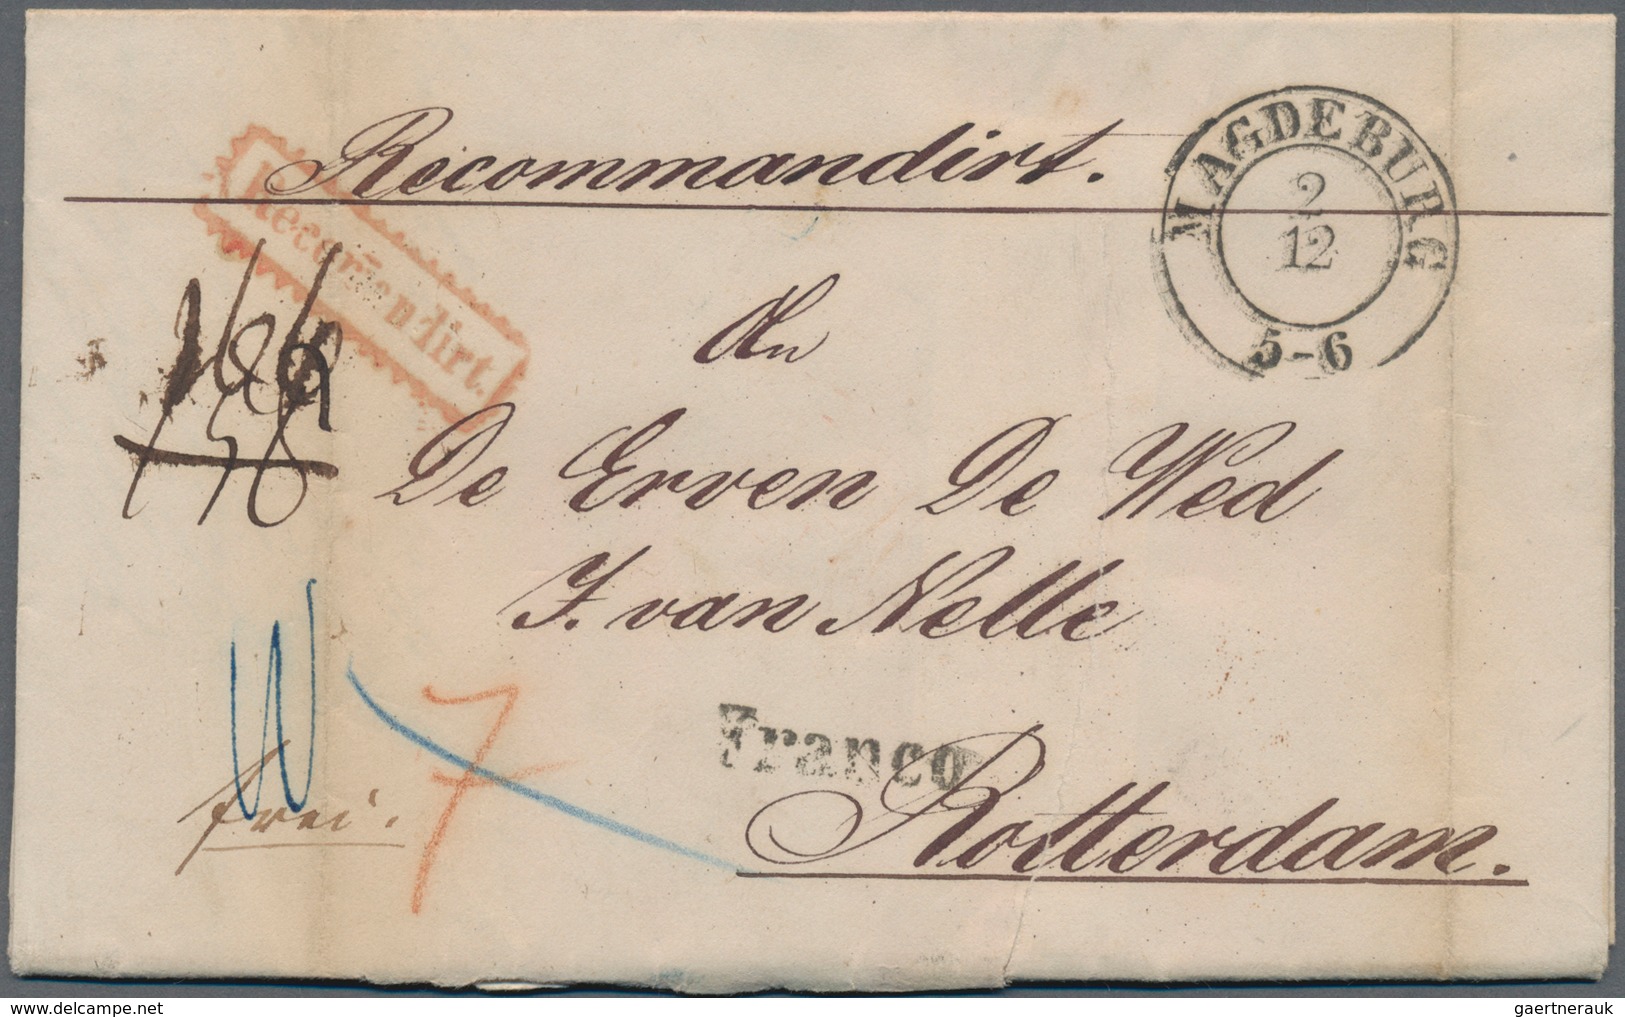 Recommandirt.
Recomandirt.
MAGDEBURG
2
12
5-6
An
De Erven De Wed
J. van Nelle
Franco
Rotterdam.
frei.
7
© www.delcampe.net
gaertnerauk